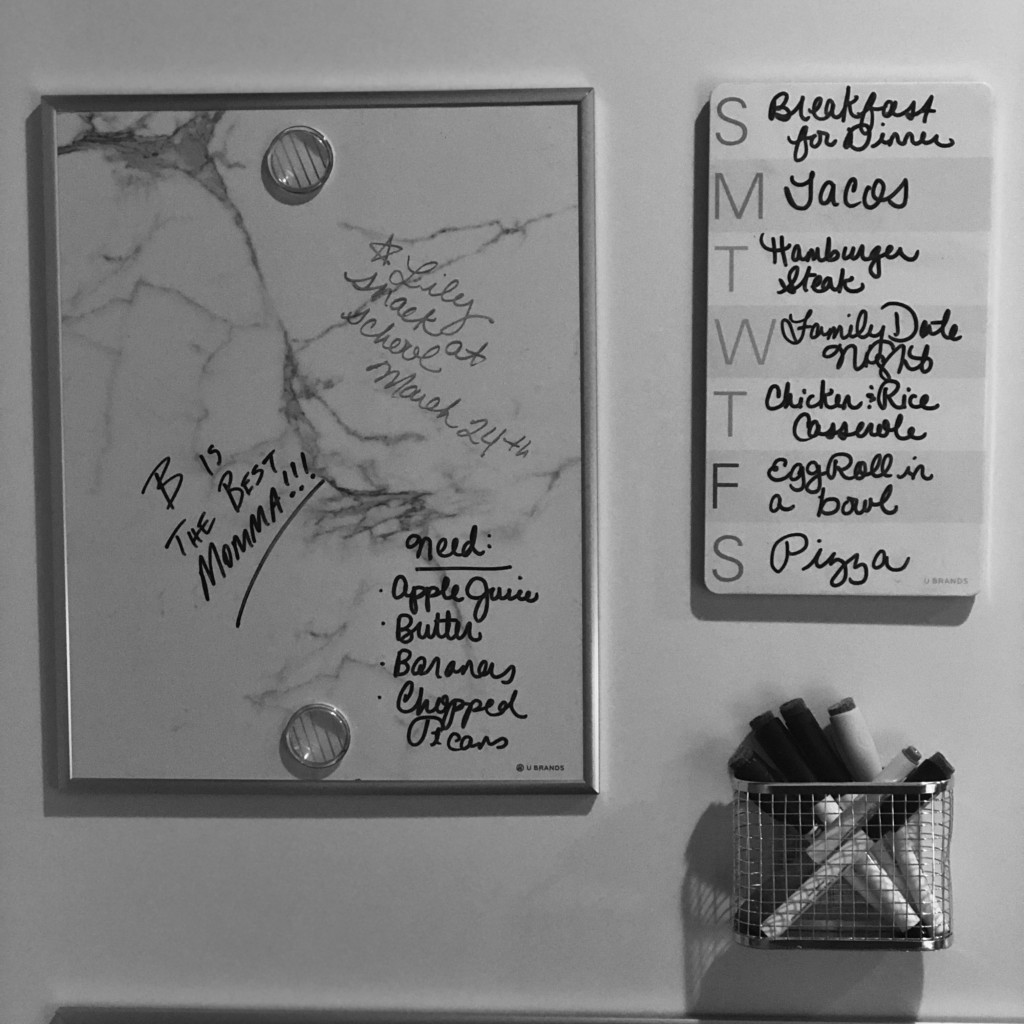 ☆ Lily
snack at
school
March 24th
B IS
THE BEST
MOMMA!!!
Need:
· Apple Juice
· Butter
· Bananas
· Chopped
Pecans
U BRANDS
S Breakfast
for Dinner
M Tacos
T Hamburger
Steak
W Family Date
Night
T Chicken & Rice
Casserole
F Egg Roll in
a bowl
S Pizza
U BRANDS